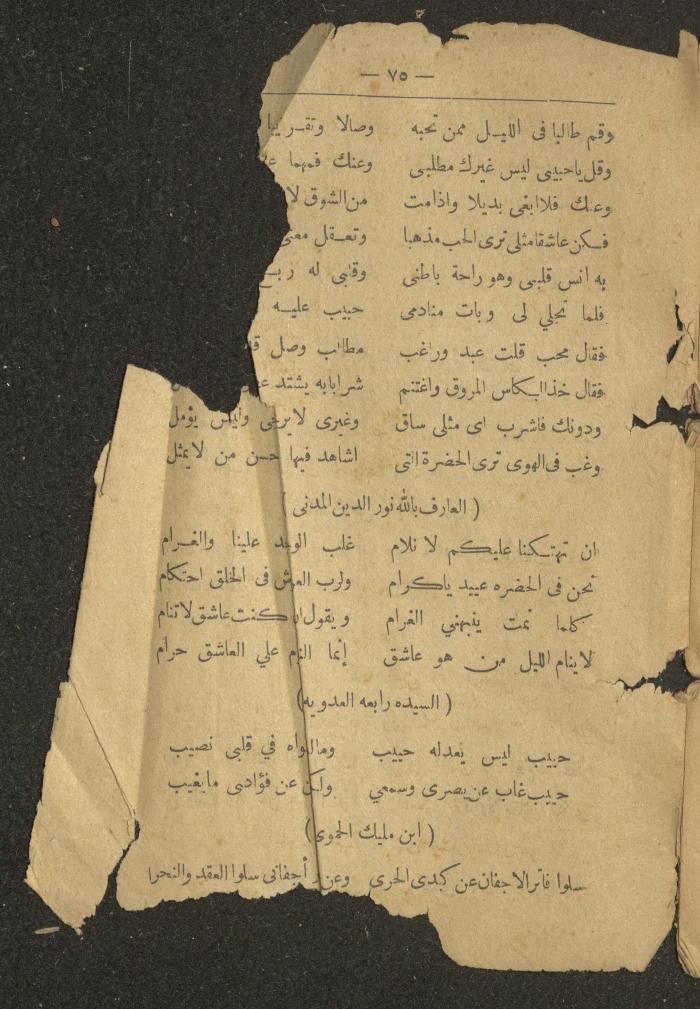 — ٧٥ —
وقم طالبا فى الليل ممن تحبه وصالا وتقر
وقل ياحبيبى ليس غيرك مطلبى وعنك فمهما
وعنك فلا ابغى بديلا واذامت من الشوق لا
فكن عاشقا مثلى ترى الحب مذهبا وتعقل معنى
به انس قلبى وهو راحة باطنى وقلبى له
فلما تجلي لى وبات منادمى حبيب عليه
فقال محب قلت عبد وراغب مطالب وصل
فقال خذ الكاس المروق واغتنم شرابا به يشتد
ودونك فاشرب اى مثلى ساق وغيرى لايرجى وليس يؤمل
وغب فى الهوى ترى الحضرة التى اشاهد فيها حسن من لايمثل
( العارف بالله نور الدين المدنى )
ان تهتكنا عليكم لا نلام غلب الوجد علينا والغرام
نحن فى الحضره عبيد ياكرام ولرب العرش فى الخلق احتكام
كلما نمت ينبهني الغرام ويقول ان كنت عاشق لاتنام
لاينام الليل من هو عاشق إنما النوم علي العاشق حرام
( السيده رابعه العدويه )
حبيب ليس يعدله حبيب وما لسواه في قلبى نصيب
حبيب غاب عن بصرى وسمعي ولكن عن فؤادى مايغيب
( ابن مليك الحموى )
سلوا فاتر الاجفان عن كبدى الحرى وعن أجفانى سلوا العقد والنحرا